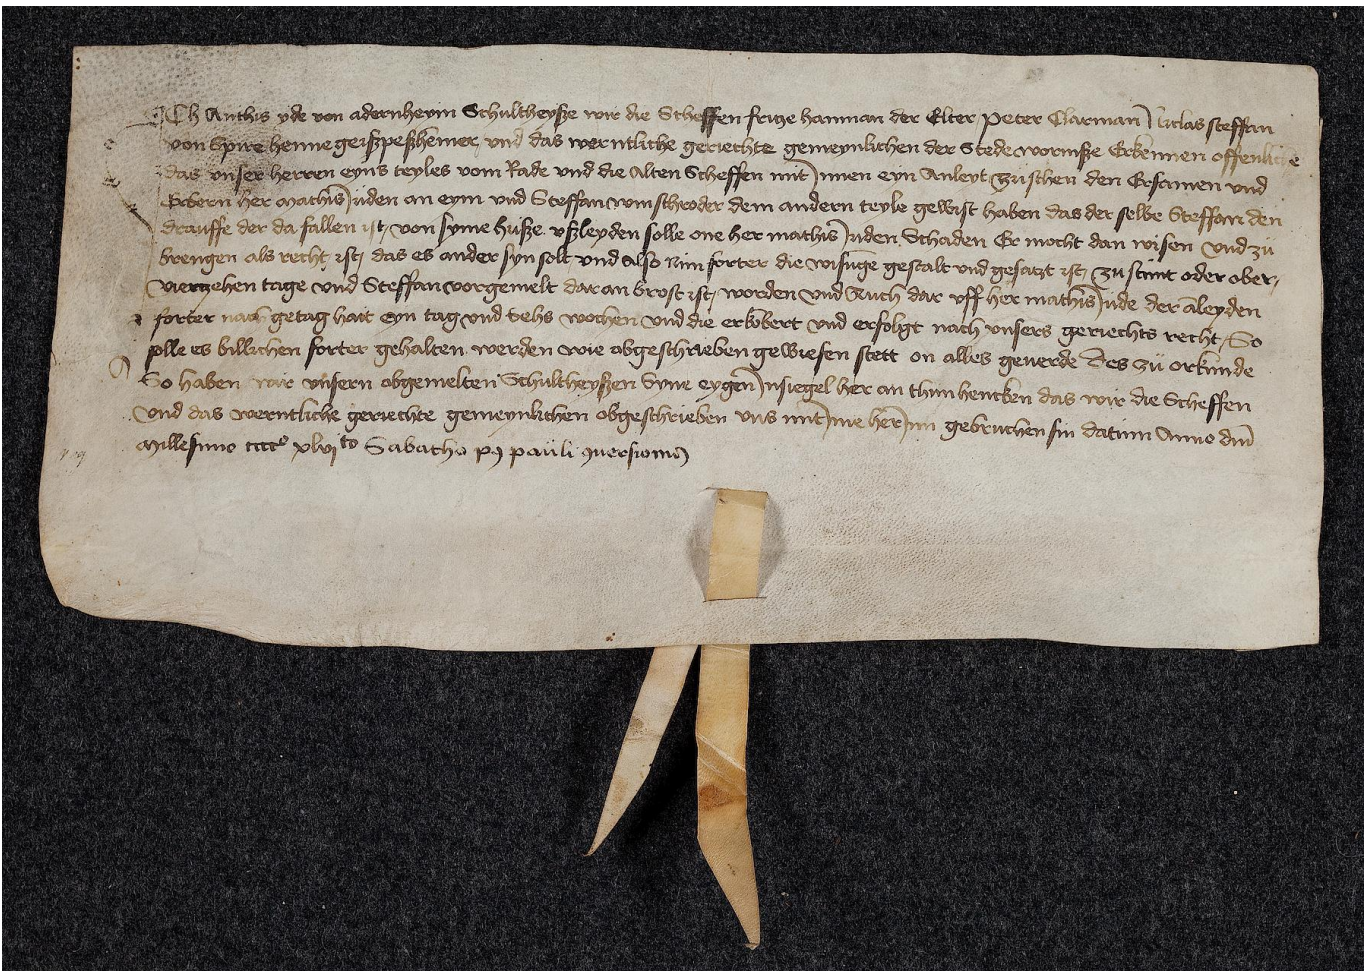 Ich Anthis yde von adernheym Schultheysze wir die Scheffen fritze hannman der Elter Peter Clarman Niclas steffan
von Spire henne geiszpeszheimer und das werntliche geriechte gemeynlichen der Stede wormsze Erkennen offenliche
das unser herren eyns teyles vom Rade und die Alten Scheffen mit Innen eyn Anleyt zuschen den Ersamen und
Erbern her mathis Juden an eym und Steffan winschroder dem andern teyle gewist haben das der selbe Steffan den
drauffe der da fallen ist, von syme husze uszleyden solle one her mathis Juden Schaden Er mocht dan wisen und zu
brengen als recht ist, das es ander syn solt und also Nun forter die wisunge gestalt und gesatzt ist, zu stunt oder ober,
vierzehen tage und Steffan vorgemelt dar an brost ist, worden und Auch dar uff her mathis Jude der aleyden
forter nach getag hait eyn tag und sehs wochen und die erkobert und erfolgt nach unsers geriechts recht, So
solle es billichen forter gehalten werden wie abgeschrieben gewiesen stett on alles geverde des zu orkunde
So haben wir unsern obgemelten Schultheyszen Syne eygen Insiegel her an thun hencken das wir die Scheffen
und das werntliche geriechte gemeynlichen obgeschrieben uns mit Ime her Inn gebruchen sin datum Anno dni
Millesimo cccc° xlvj to Sabatho p9 pauli 9uersionis